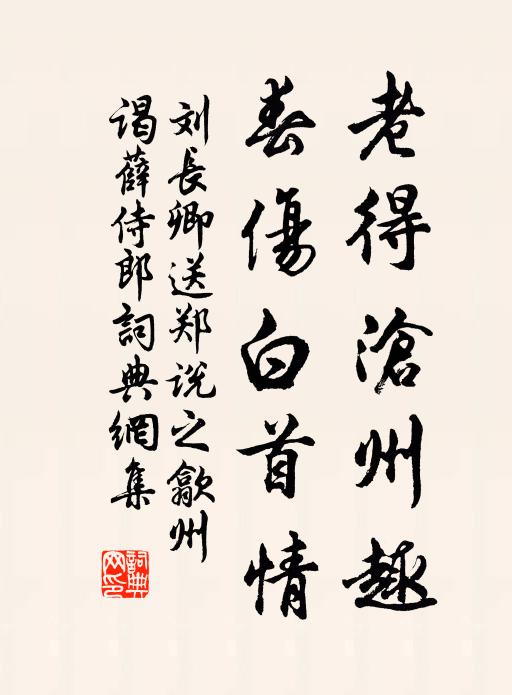 老得滄州趣
春傷白首情
刘長卿送郑説之歙州
謁薛侍郎詞典網集
詞典网印